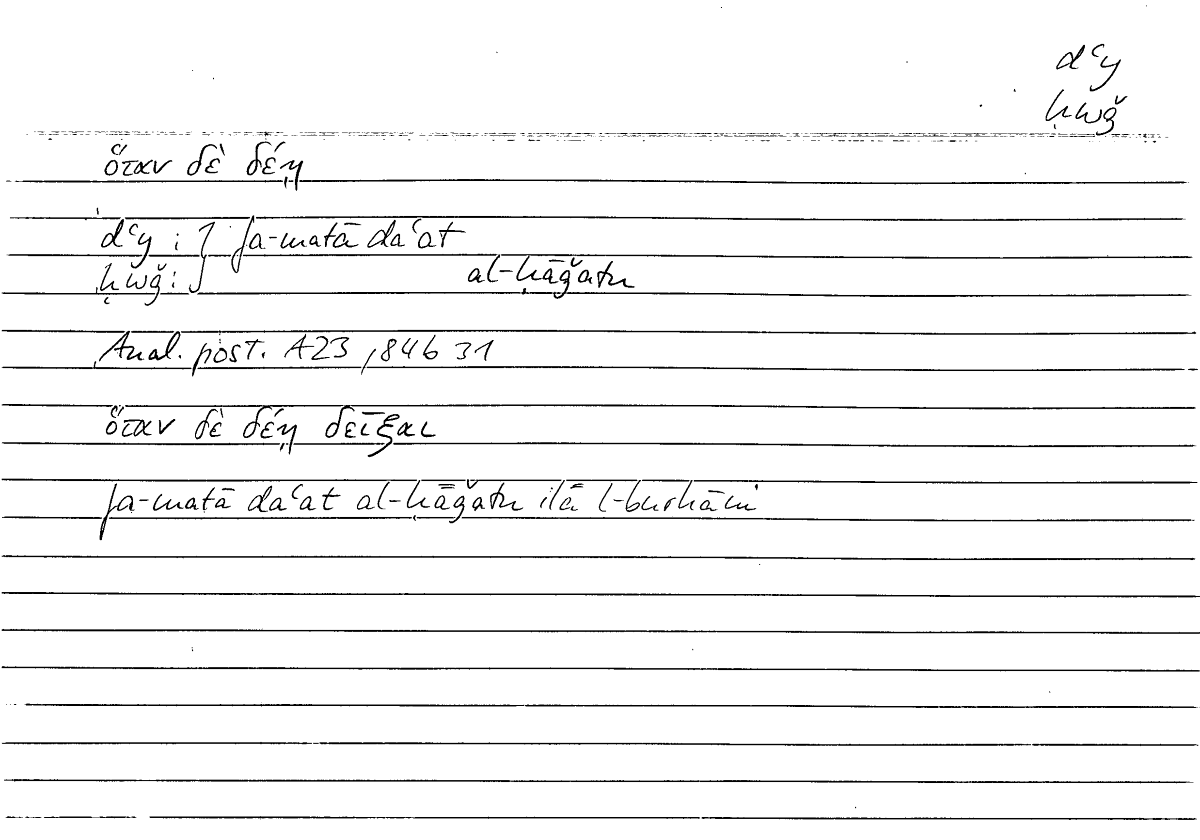 dʿy
ḥwǧ
ὅταν δὲ δέῃ
dʿy : } fa-matā daʿat
ḥwǧ : } al-ḥāǧatu
Anal. post. A23, 84b 31
ὅταν δὲ δέῃ δεῖξαι
fa-matā daʿat al-ḥāǧatu ilā l-burhāni